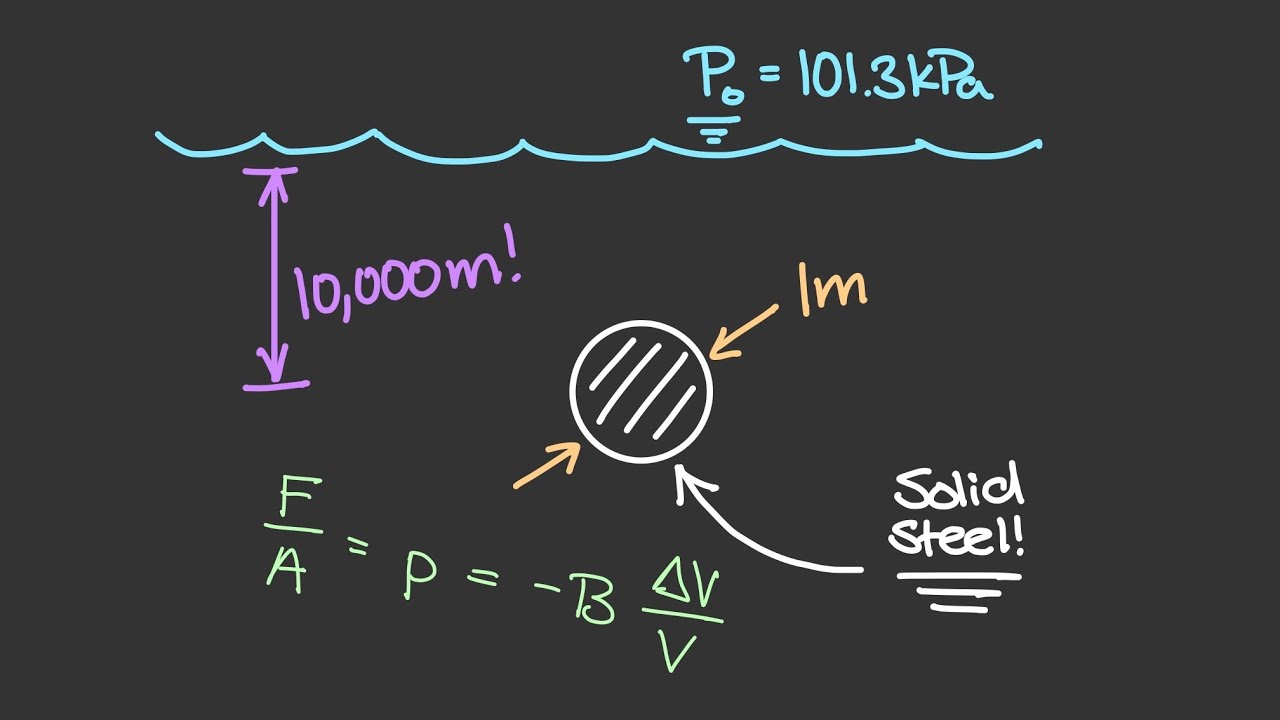 P₀ = 101.3kPa
10,000m!
1m
Solid
Steel!
F/A = P = -B ΔV/V